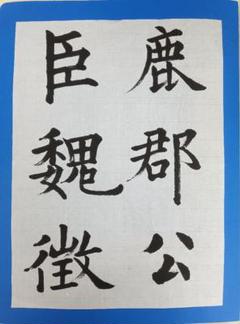 鹿郡公
臣魏徴